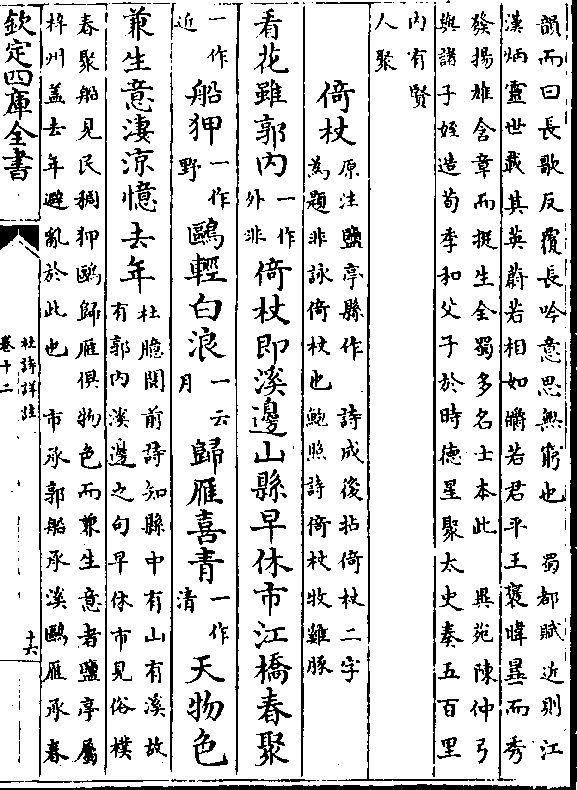 韻而曰長歌反覆長吟意思無窮也　蜀都賦近則江
漢炳靈世載其英蔚若相如皭若君平王褒暐曅而秀
發揚雄含章而挺生全蜀多名士本此　異苑陳仲弓
與諸子姪造荀季和父子於時德星聚太史奏五百里
内有賢
人聚
倚杖
原注鹽亭縣作　詩成後拈倚杖二字
為題非詠倚杖也鮑照詩倚杖牧雞豚
看花雖郭内
一作
外非
倚杖即溪邊山縣早休市江橋春聚
一作
近
船狎
一作
野
鷗輕白浪
一云
月
歸雁喜青
一作
清
天物色
兼生意淒涼憶去年
杜臆閱前詩知縣中有山有溪故
有郭内溪邊之句早休市見俗樸
春聚船見民稠狎鷗歸雁俱物色而兼生意者鹽亭屬
梓州蓋去年避亂於此也　市承郭船承溪鷗雁承春
欽定四庫全書
杜詩詳註
卷十二
十六